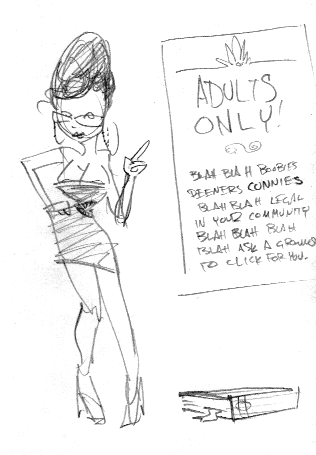 ADULTS
ONLY!
BLAH BLAH BOOBIES
DEENERS CONNIES
BLAH BLAH LEGAL
IN YOUR COMMUNITY
BLAH BLAH BLAH
BLAH ASK A GROWNUP
TO CLICK FOR YOU.